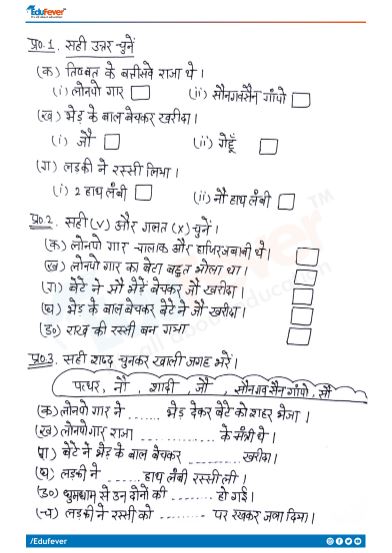 EduFever
प्र०.1. सही उत्तर चुनें
(क) तिब्बत के बत्तीसवें राजा थे।
(i) लोनपो गार (ii) सौनगवसैन गांपो
(ख) भेड़ के बाल बेचकर खरीदा।
(i) जौ (ii) गेहूँ
(ग) लड़की ने रस्सी लिया।
(i) 2 हाथ लंबी (ii) नौ हाथ लंबी
प्र०.2. सही (v) और गलत (x) चुनें।
(क) लोनपो गार चालाक और हाजिरजवाबी थे।
(ख) लोनपो गार का बेटा बहुत भोला था।
(ग) बेटे ने जौ भेड़ें बेचकर जौ खरीदा।
(घ) भेड़ के बाल बेचकर बेटे ने जौ खरीदा।
(ड०) राख की रस्सी बन गया
प्र०.3. सही शब्द चुनकर खाली जगह भरें।
पत्थर, नौ, शादी, जौ, सौनगवसैन गांपो, सौ
(क) लोनपो गार ने ....... भेड़ देकर बेटे को शहर भेजा।
(ख) लोनपो गार राजा ............ के मंत्री थे।
(ग) बेटे ने भेड़ के बाल बेचकर ......... खरीदा।
(घ) लड़की ने ....... हाथ लंबी रस्सी ली।
(ड०) धूमधाम से उन दोनों की ........ हो गई।
(च) लड़की ने रस्सी को ......... पर रखकर जला दिया।
/Edufever
edufever.com